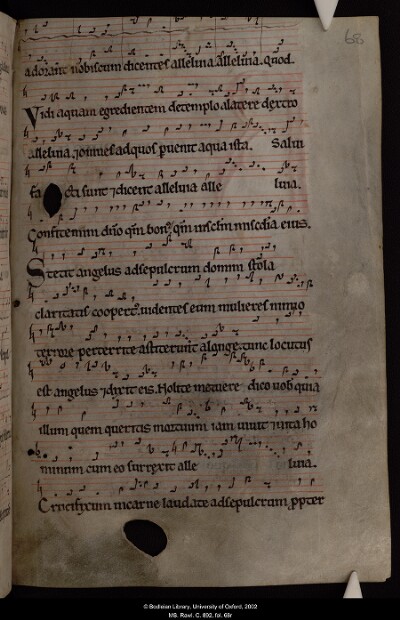 68
adorant nobiscum dicentes alleluia alleluia. Quod.
Vidi aquam egredientem de templo a latere dextro
alleluia. ⁊ omnes ad quos puenit aqua ista. Salui
fa cti sunt ⁊ dicent alleluia alle luia.
Confitemini dño qm̄ bon⁹ qm̄ in sclm̄ miscdia eius.
Stetit angelus ad sepulcrum domini stola
claritatis coopert⁹. uidentes eum mulieres nimio
terrore perterrite astiterunt a longe. tunc locutus
est angelus ⁊ dixit eis. Nolite metuere dico uob quia
illum quem queritis mortuum iam uiuit ⁊ uita ho
minum cum eo surrexit alle luia.
Crucifixum in carne laudate ad sepulcrum ppter
© Bodleian Library, University of Oxford, 2002
MS. Rawl. C. 892, fol. 68r